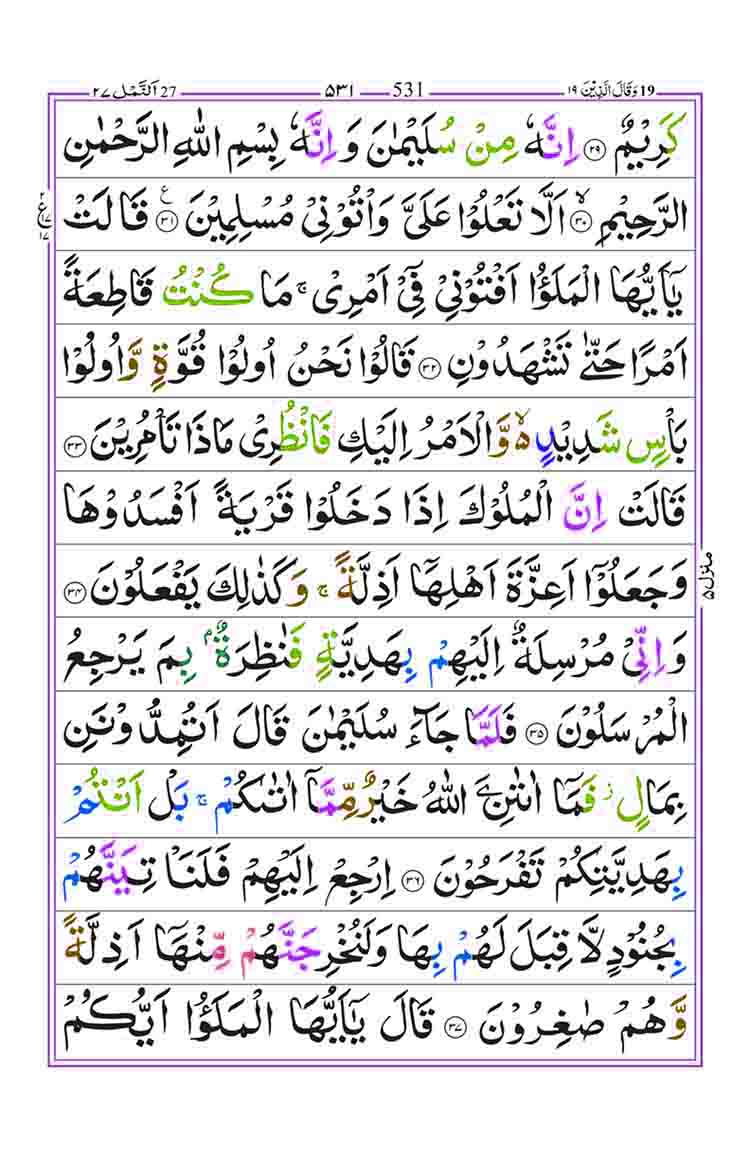 ١٩ وَقَالَ الَّذِيْنَ 19 531 ۵۳۱ 27 اَلنَّمْل ۲۷
كَرِيْمٌ ۝۲۹ اِنَّهٗ مِنْ سُلَيْمٰنَ وَاِنَّهٗ بِسْمِ اللّٰهِ الرَّحْمٰنِ
الرَّحِيْمِ ۙ۝۳۰ اَلَّا تَعْلُوْا عَلَيَّ وَاْتُوْنِيْ مُسْلِمِيْنَ ۝۳۱ ع قَالَتْ
۲ ع ۱۷ ۱۷
يٰٓاَيُّهَا الْمَلَؤُا اَفْتُوْنِيْ فِيْٓ اَمْرِيْ ۚ مَا كُنْتُ قَاطِعَةً
اَمْرًا حَتّٰى تَشْهَدُوْنِ ۝۳۲ قَالُوْا نَحْنُ اُولُوْا قُوَّةٍ وَّاُولُوْا
بَاْسٍ شَدِيْدٍ ۙ۬ وَّالْاَمْرُ اِلَيْكِ فَانْظُرِيْ مَاذَا تَاْمُرِيْنَ ۝۳۳
قَالَتْ اِنَّ الْمُلُوْكَ اِذَا دَخَلُوْا قَرْيَةً اَفْسَدُوْهَا
وَجَعَلُوْٓا اَعِزَّةَ اَهْلِهَآ اَذِلَّةً ۚ وَكَذٰلِكَ يَفْعَلُوْنَ ۝۳۴
منزل ۵
وَاِنِّيْ مُرْسِلَةٌ اِلَيْهِمْ بِهَدِيَّةٍ فَنٰظِرَةٌۢ بِمَ يَرْجِعُ
الْمُرْسَلُوْنَ ۝۳۵ فَلَمَّا جَآءَ سُلَيْمٰنَ قَالَ اَتُمِدُّوْنَنِ
بِمَالٍ ؗ فَمَآ اٰتٰىنِۦَ اللّٰهُ خَيْرٌ مِّمَّآ اٰتٰىكُمْ ۚ بَلْ اَنْتُمْ
بِهَدِيَّتِكُمْ تَفْرَحُوْنَ ۝۳۶ اِرْجِعْ اِلَيْهِمْ فَلَنَاْتِيَنَّهُمْ
بِجُنُوْدٍ لَّا قِبَلَ لَهُمْ بِهَا وَلَنُخْرِجَنَّهُمْ مِّنْهَآ اَذِلَّةً
وَّهُمْ صٰغِرُوْنَ ۝۳۷ قَالَ يٰٓاَيُّهَا الْمَلَؤُا اَيُّكُمْ